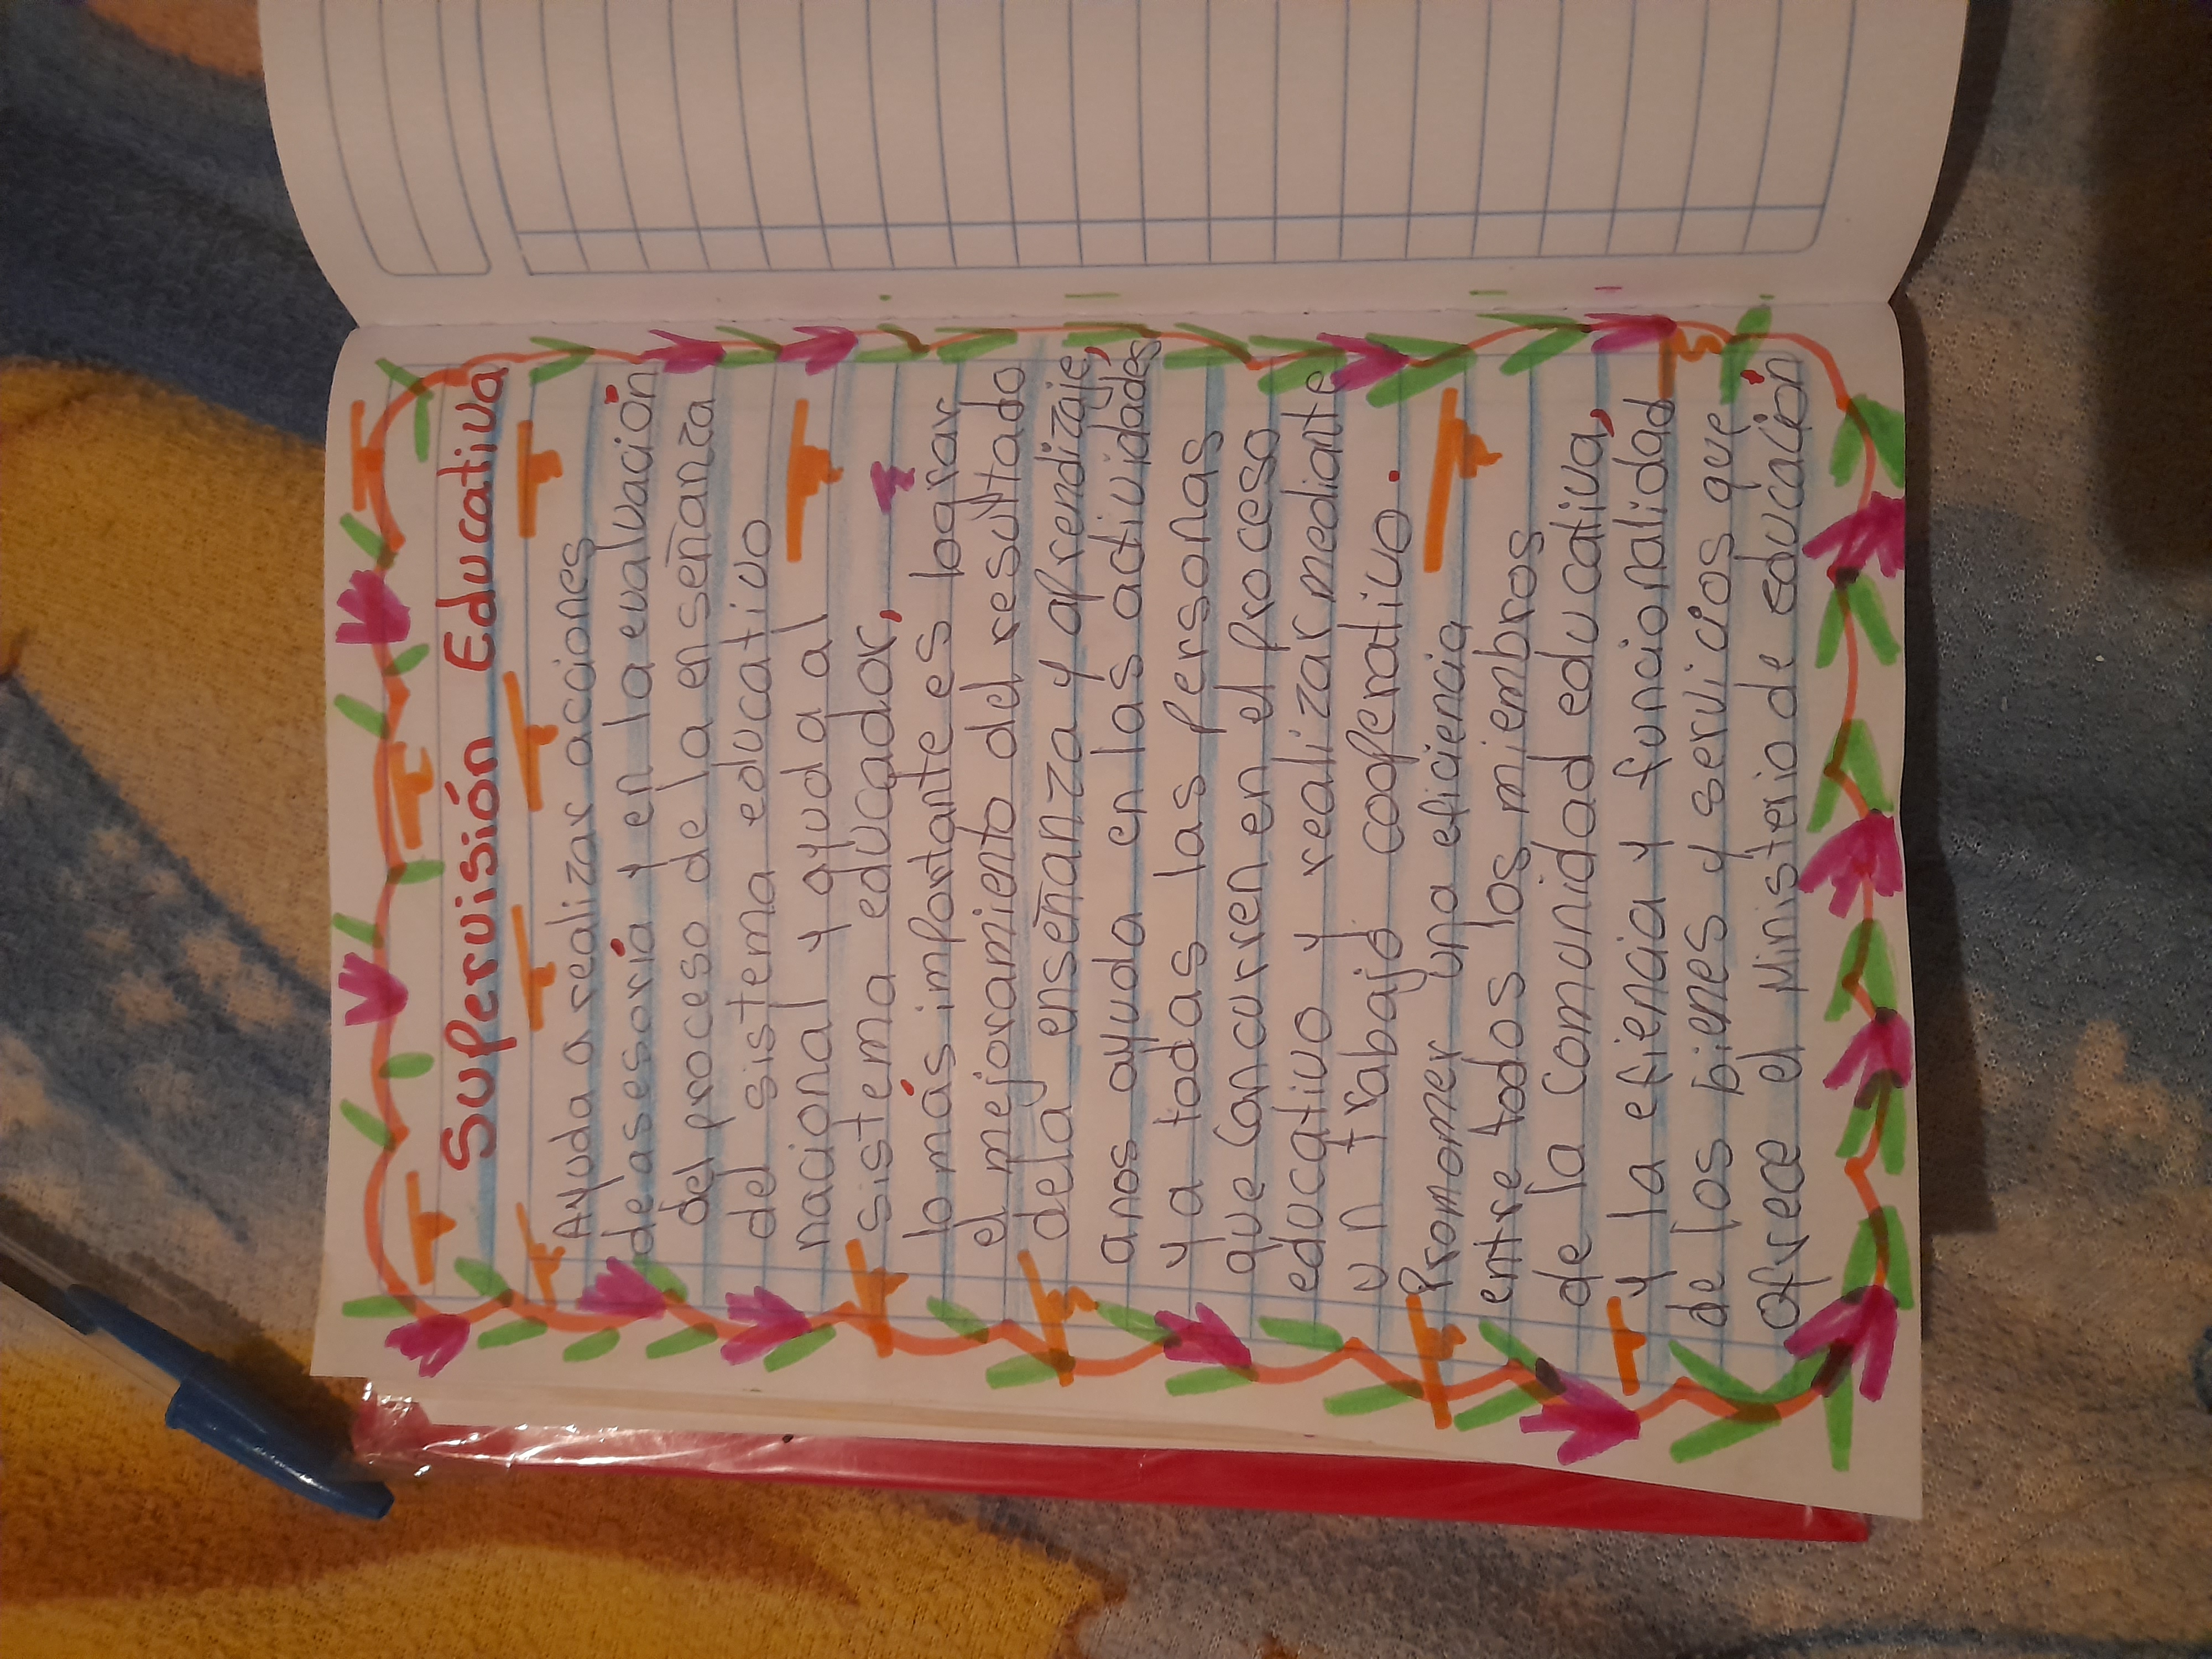 Supervisión Educativa
Ayuda a realizar acciones
de asesoría y en la evaluación
del proceso de la enseñanza
del sistema educativo
nacional y ayuda al
sistema educador,
lo más importante es lograr
el mejoramiento del resultado
dela enseñanza y aprendizaje,
anos ayuda en las actividades
y a todas las personas
que concurren en el proceso
educativo y realizar mediante
un trabajo cooperativo.
Promomer una eficiencia
entre todos los miembros
de la comunidad educativa,
y la efiencia y funcionalidad
de los bienes y servicios que
ofrece el Ministerio de educación